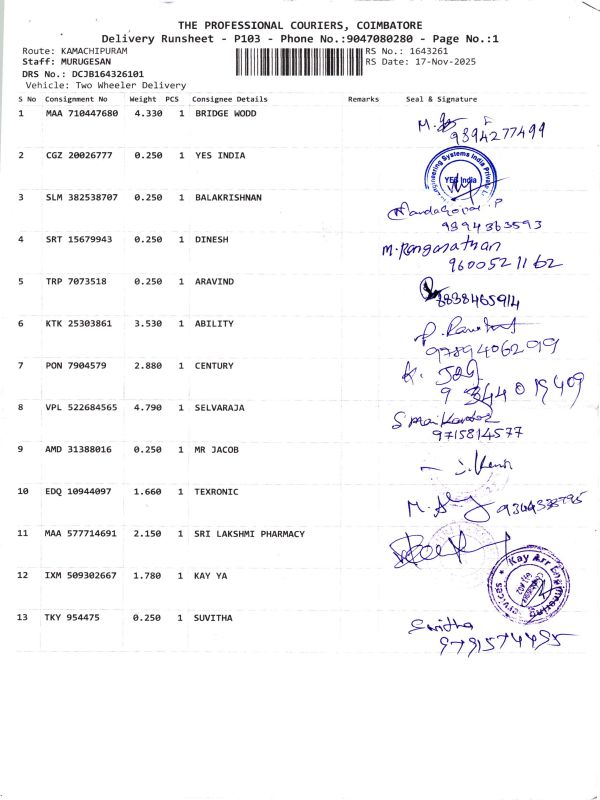 THE PROFESSIONAL COURIERS, COIMBATORE
Delivery Runsheet - P103 - Phone No.:9047080280 - Page No.:1
Route: KAMACHIPURAM RS No.: 1643261
Staff: MURUGESAN RS Date: 17-Nov-2025
DRS No.: DCJB164326101
Vehicle: Two Wheeler Delivery
S No Consignment No Weight PCS Consignee Details Remarks Seal & Signature
1 MAA 710447680 4.330 1 BRIDGE WODD
9394277499
2 CGZ 20026777 0.250 1 YES INDIA
Engineering Systems India Private
YES India
3 SLM 382538707 0.250 1 BALAKRISHNAN
Nandagopal.P
9894363593
4 SRT 15679943 0.250 1 DINESH M.Rangarathan
9600521162
5 TRP 7073518 0.250 1 ARAVIND
8838465914
6 KTK 25303861 3.530 1 ABILITY
9789406299
7 PON 7904579 2.880 1 CENTURY K.
9344019409
8 VPL 522684565 4.790 1 SELVARAJA
9715814577
9 AMD 31388016 0.250 1 MR JACOB
10 EDQ 10944097 1.660 1 TEXRONIC M.
11 MAA 577714691 2.150 1 SRI LAKSHMI PHARMACY
12 IXM 509302667 1.780 1 KAY YA
Kay Arr Engineering Services
13 TKY 954475 0.250 1 SUVITHA Suvitha
9791574495